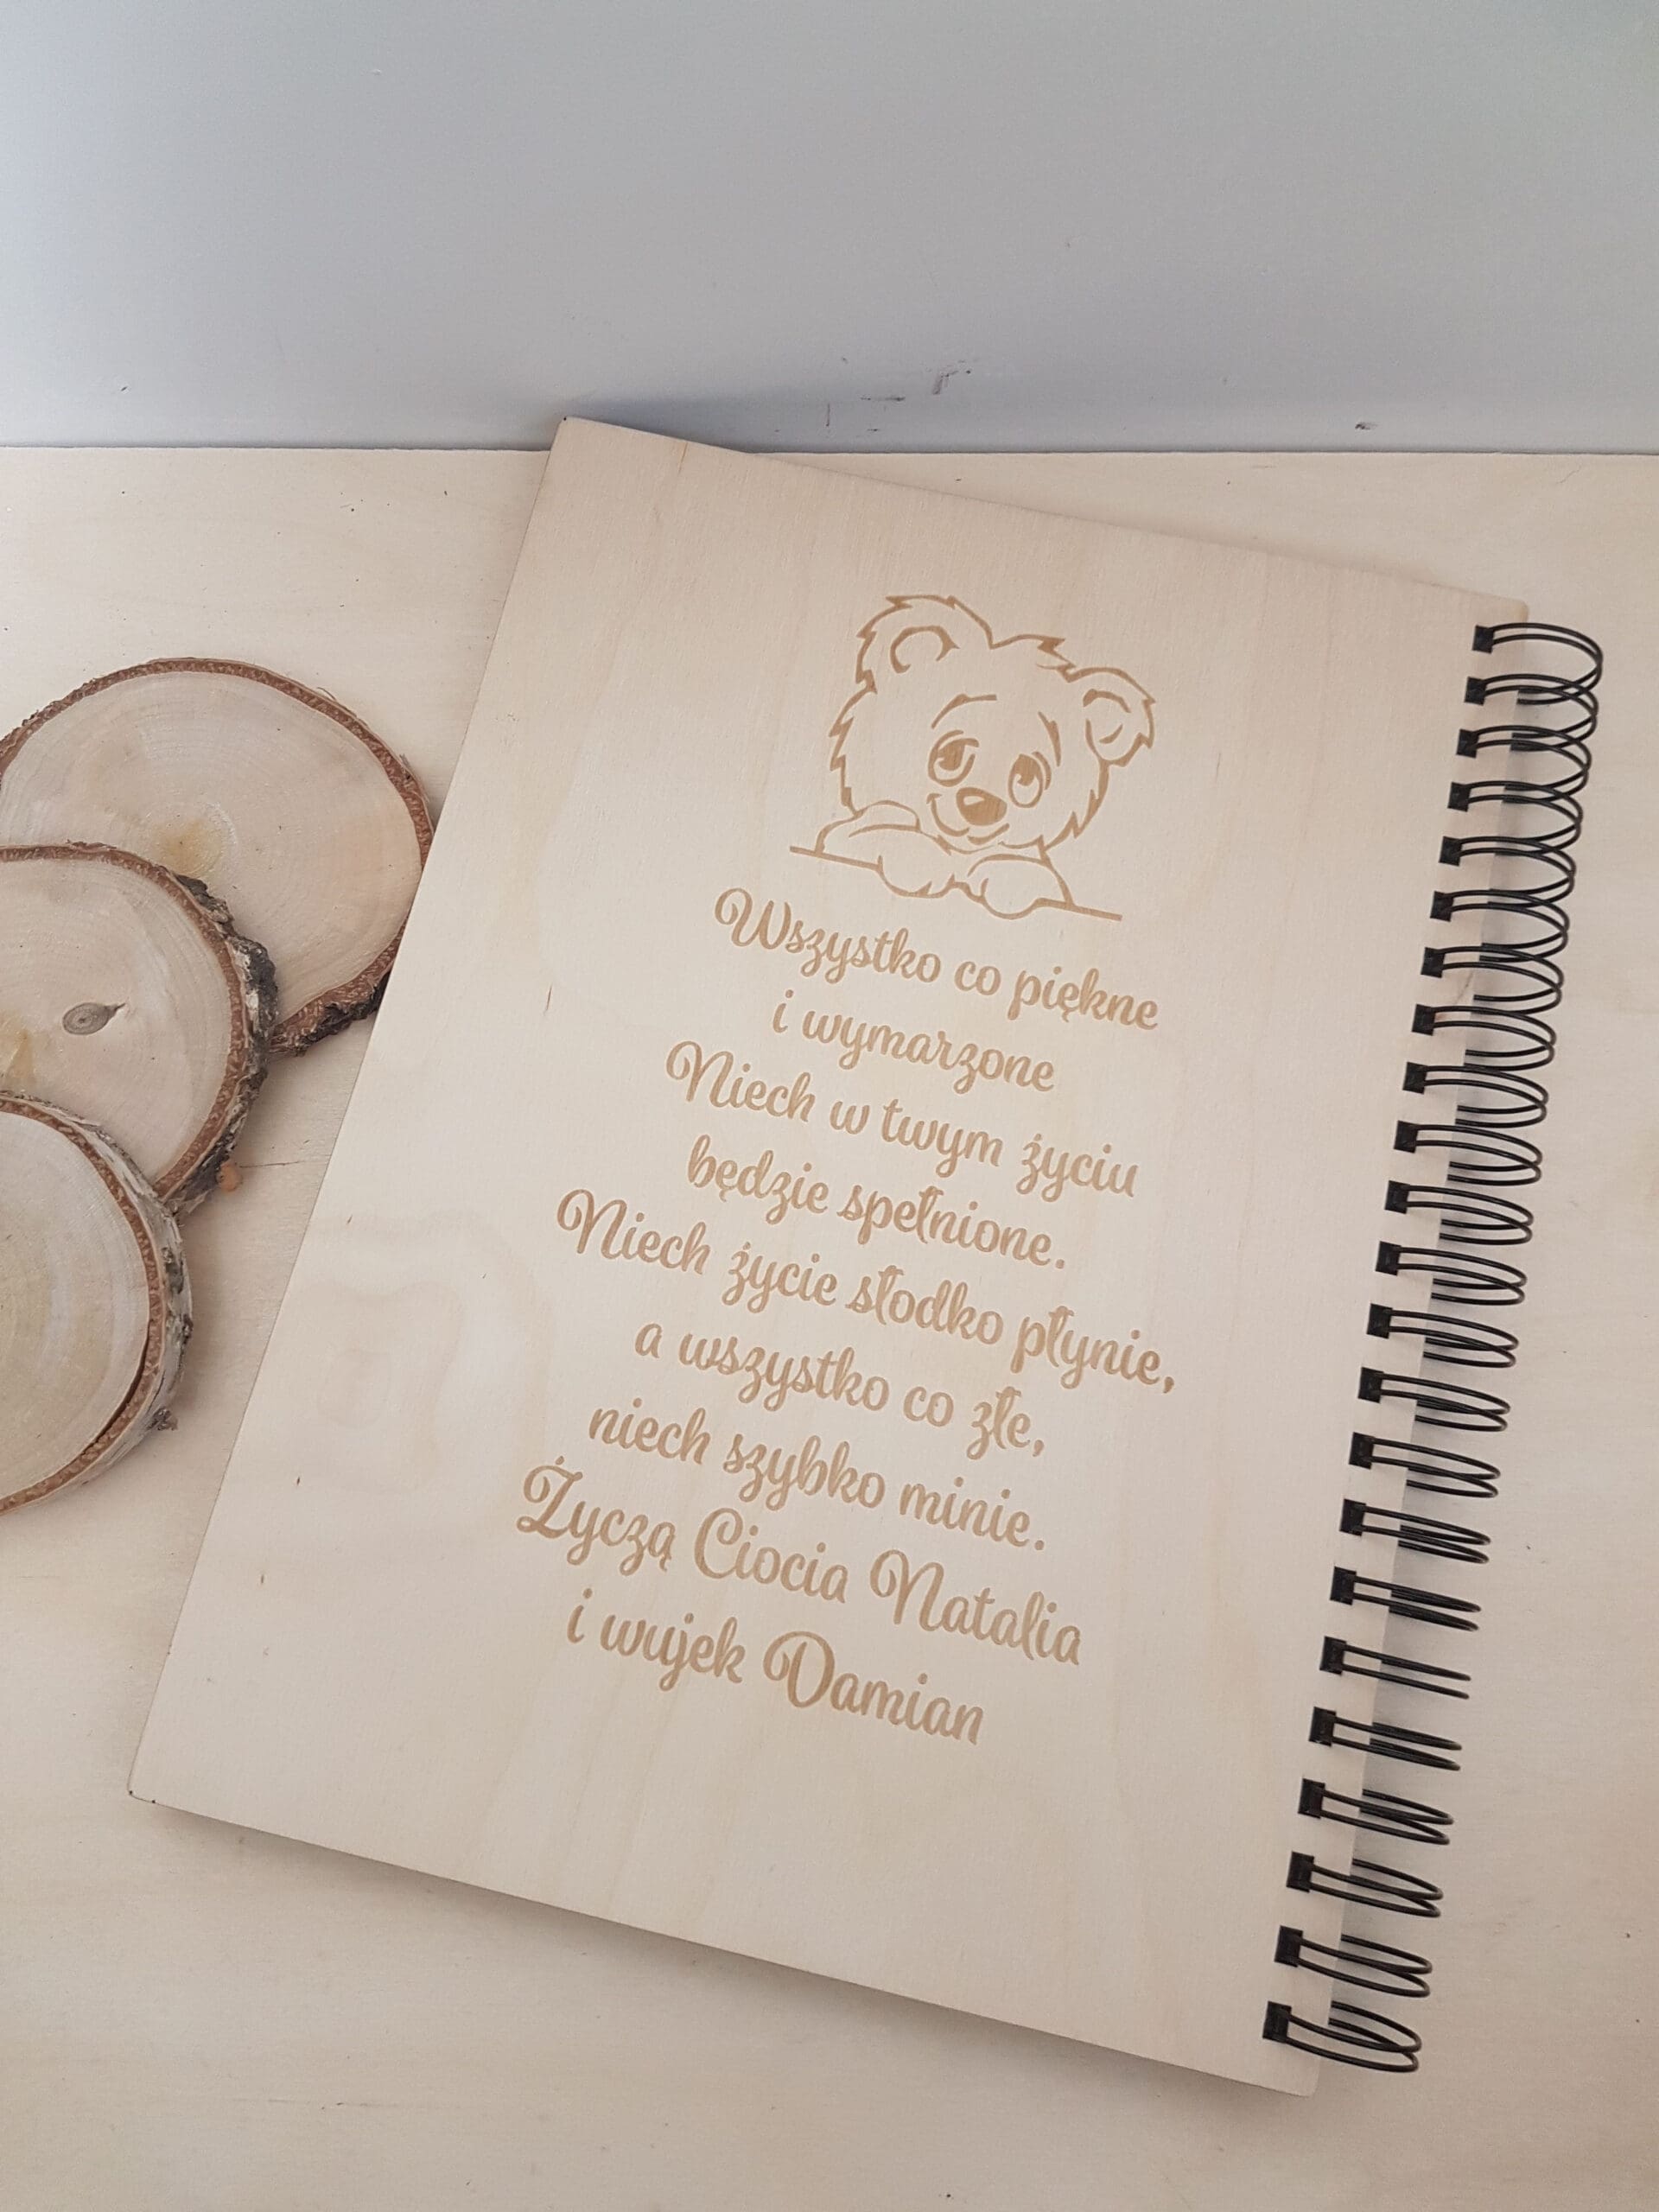 Wszystko co piękne
i wymarzone
Niech w twym życiu
będzie spełnione.
Niech życie słodko płynie,
a wszystko co złe,
niech szybko minie.
Życzą Ciocia Natalia
i wujek Damian